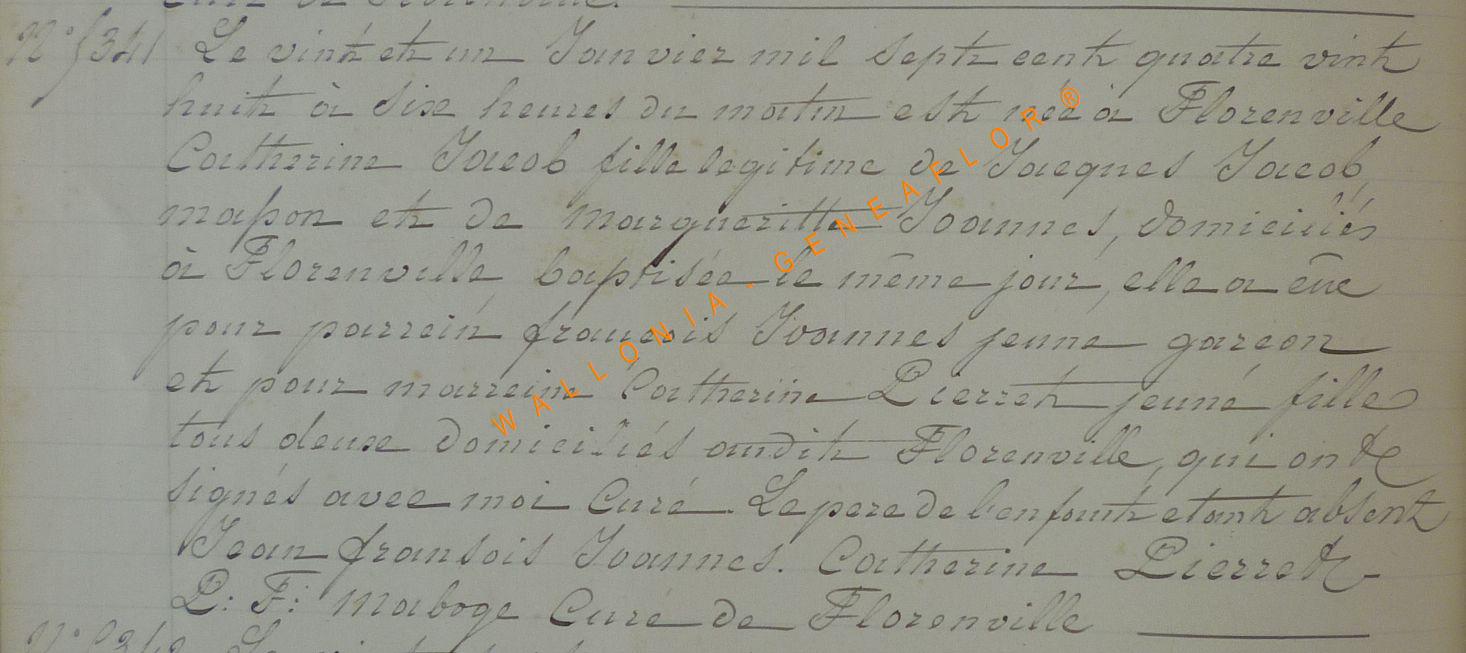 Curé de Florenville.
N° 5341 Le vint et un Janvier mil sept cent quatre vint
huit à six heures du matin est née à Florenville
Catherine Jacob fille legitime de Jacques Jacob,
maſson et de margueritte Joannes, domiciliés
à Florenville, baptisée le même jour, elle a eue
pour parrein françois Joannes jeune garcon
et pour marreine Catherine Pierret jeune fille
tous deux domiciliés audit Florenville, qui ont
signés avec moi Curé. Le pere de l'enfant etant absent
Jean fransois Joannes. Catherine Pierret
P: F: Maboge Curé de Florenville
WALLONIA - GENEAFLOR ®